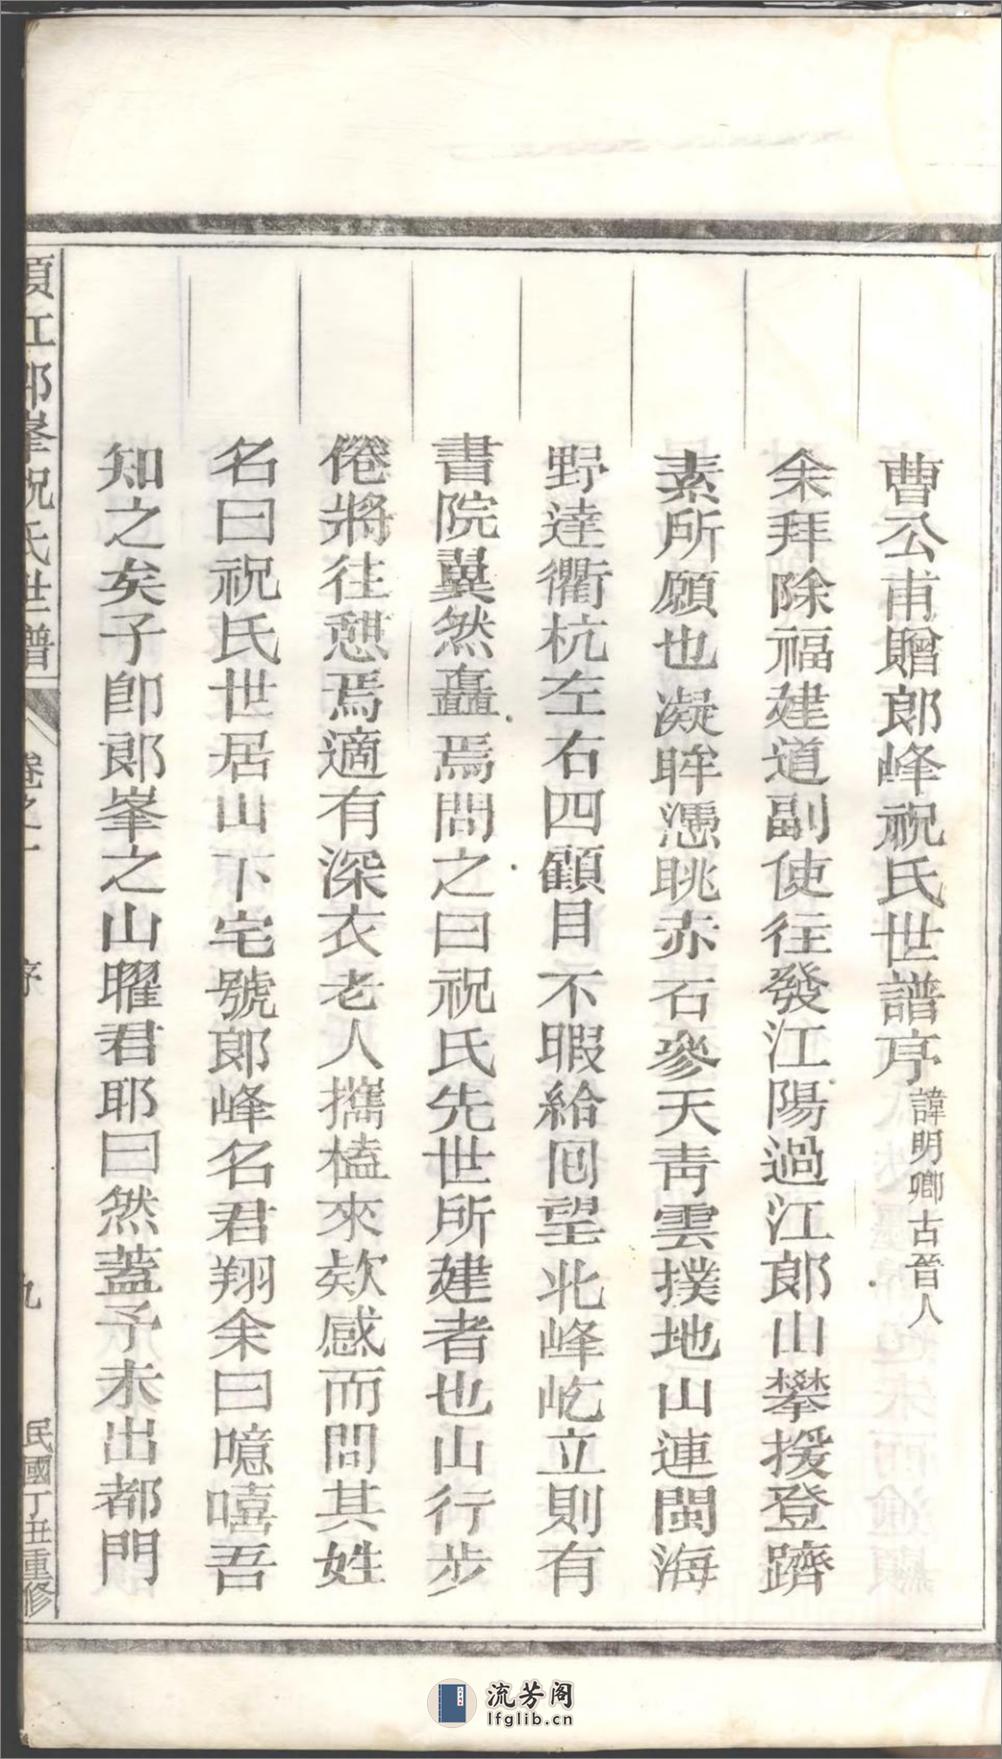 曹公甫贈郎峰祝氏世譜序諱明卿古晉人
余拜除福建道副使往發江陽過江郎山攀援登躋
素所願也凝眸憑眺赤石參天青雲撲地山連閩海
野達衢杭左右四顧目不暇給回望北峰屹立則有
書院翼然矗焉問之曰祝氏先世所建者也山行步
倦將往憩焉適有深衣老人攜榼來欵感而問其姓
名曰祝氏世居山下宅號郎峰名君翔余曰噫嘻吾
知之矣子卽郎峯之山曜君耶曰然蓋予未出都門
須江郎峯祝氏世譜
卷之一
序
九
民國丁丑重修
流芳阁
lfglib.cn